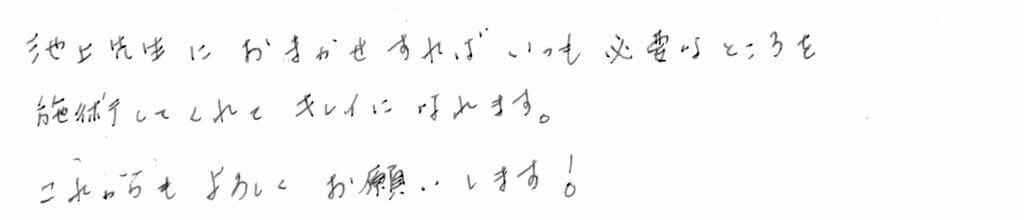 池上先生におまかせすればいつも必要なところを
施術してくれてキレイになれます。
これからもよろしくお願いします!